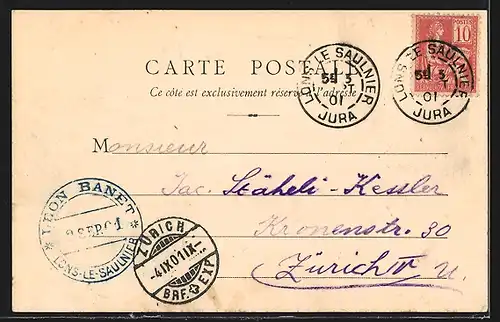 CARTE POSTALE
Ce côté est exclusivement réservé à l'adresse
POSTES
10
LONS-LE SAULNIER
5E 3
01
JURA
LONS-LE SAULNIER
5E 3
01
JURA
Monsieur
Jac. Stäheli-Kessler
Kronenstr. 30
Zürich IV u.
LEON BANET
SEP. 01
LONS-LE-SAULNIER
ZÜRICH
-4.IX.01.IX-
BRF. EXP.